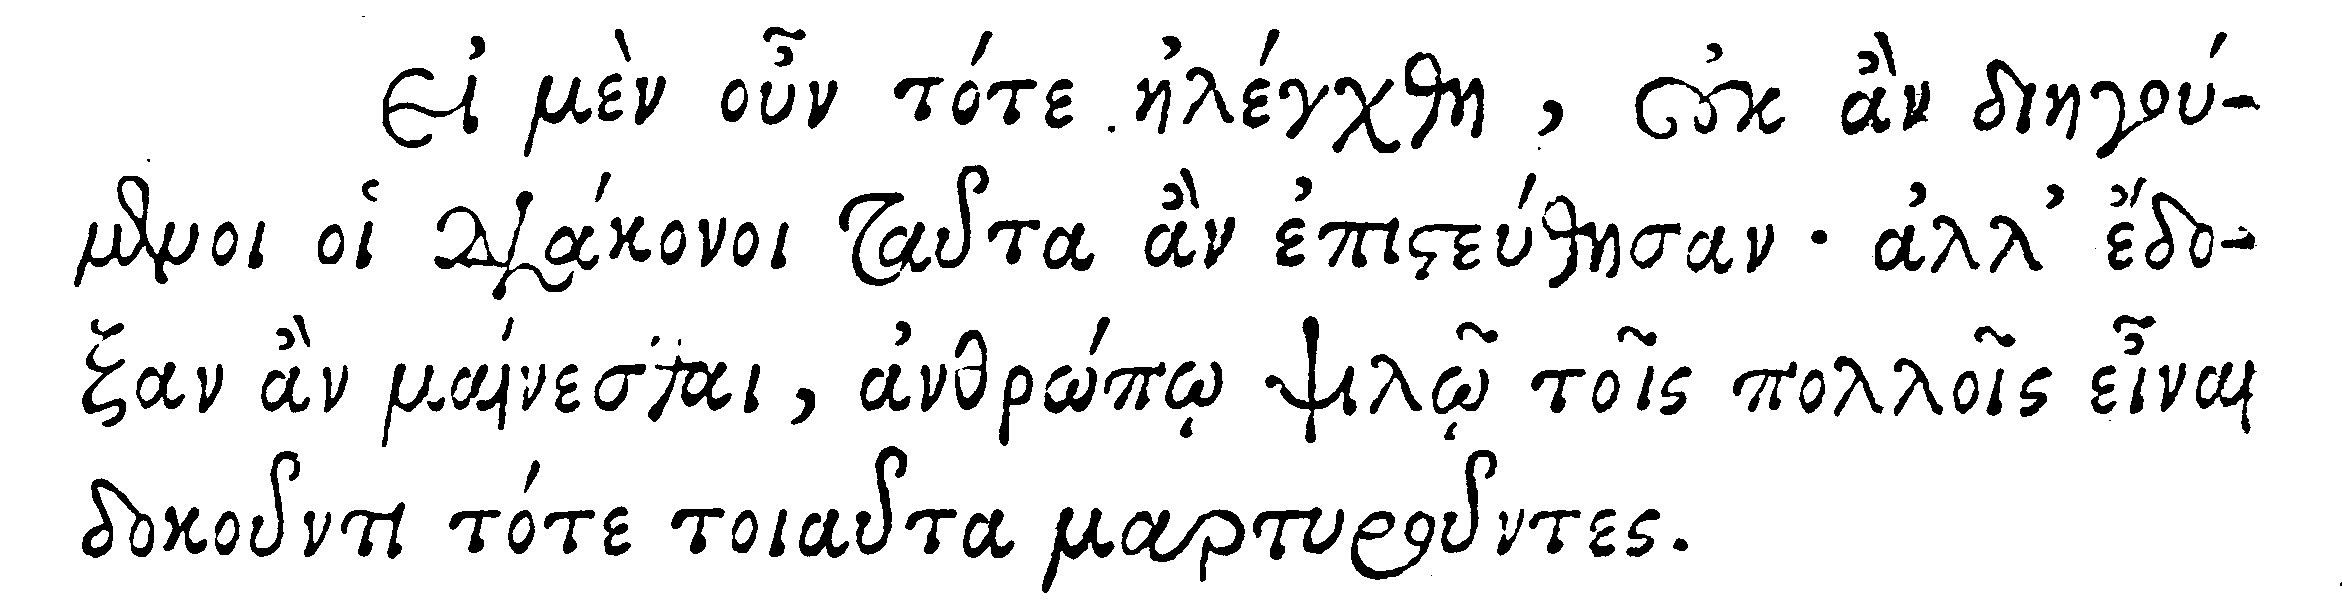 Εἰ μὲν οὖν τότε ἠλέγχθη, οὐκ ἂν διηγού-
μενοι οἱ διάκονοι ταῦτα ἂν ἐπιστεύθησαν· ἀλλ' ἔδο-
ξαν ἂν μαίνεσθαι, ἀνθρώπῳ ψιλῷ τοῖς πολλοῖς εἶναι
δοκοῦντι τότε τοιαῦτα μαρτυροῦντες.